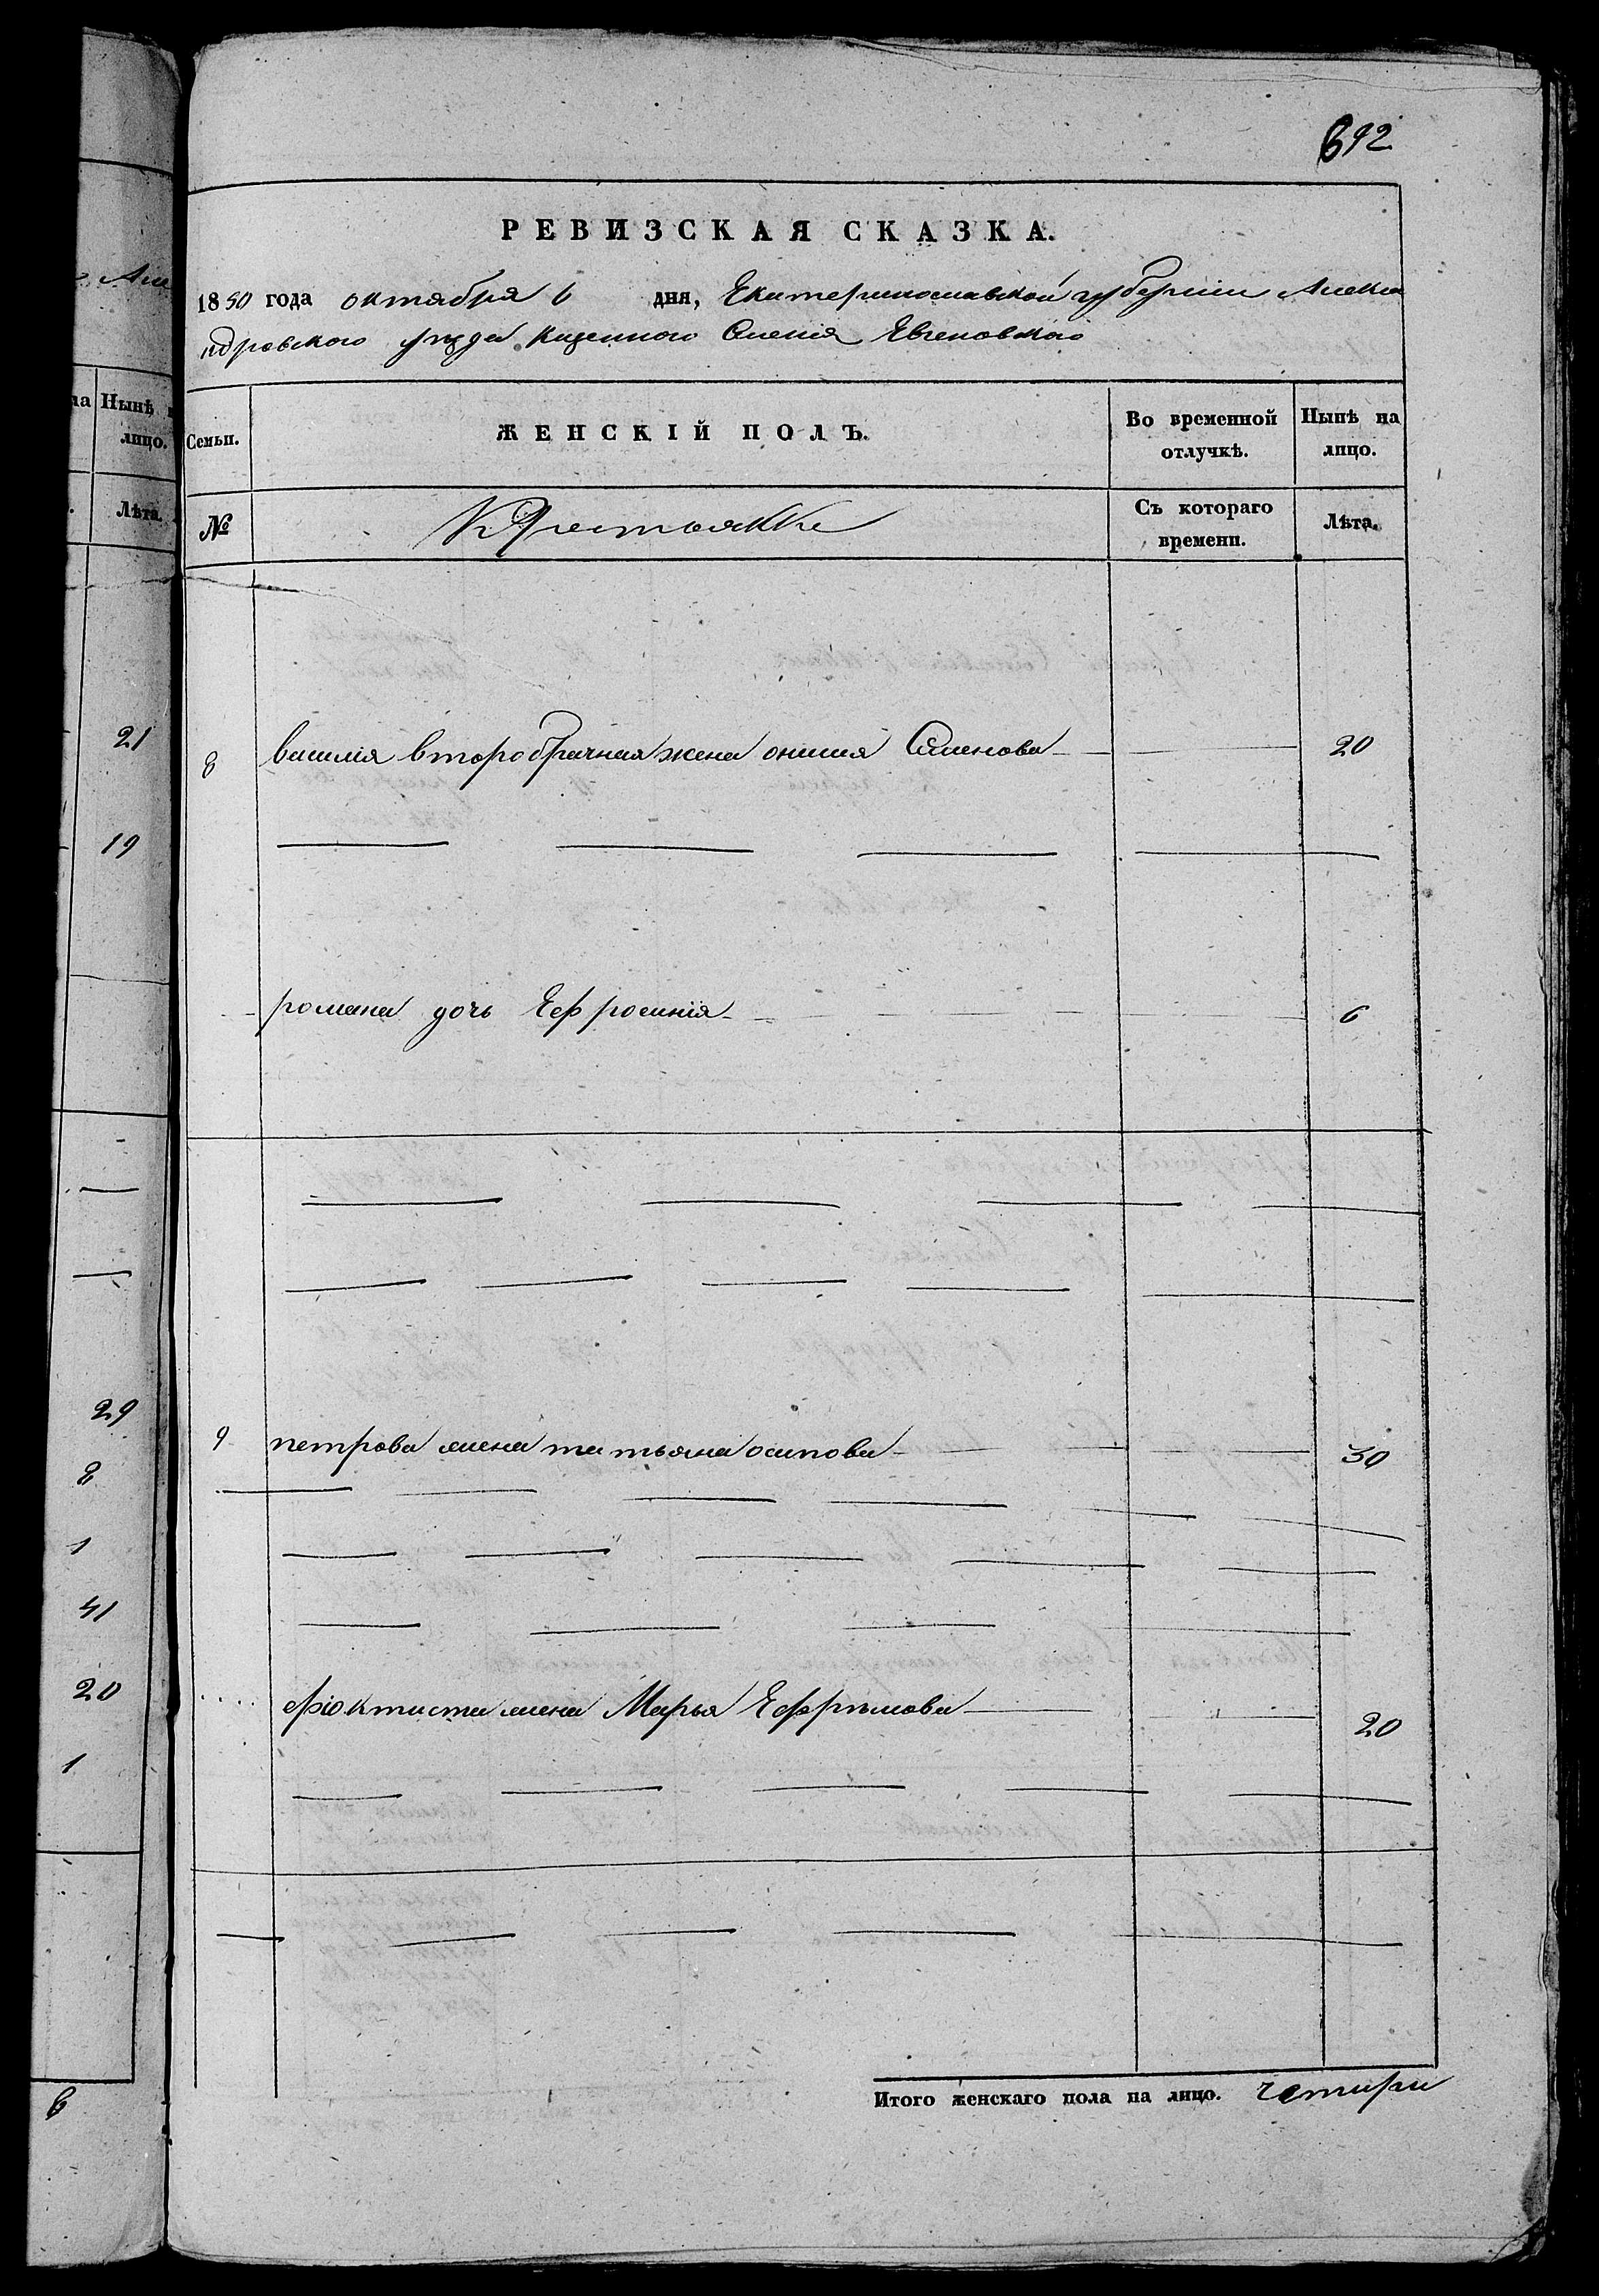 692
РЕВИЗСКАЯ СКАЗКА.
1850 года октября 6 дня, Екатеринославской губернии Алекса
ндровского уезда казенного Селения Евгеновского
Семьи. ЖЕНСКІЙ ПОЛЪ. Во временной отлучкѣ. Нынѣ на лицо.
№ Крестьянке Съ котораго времени. Лѣта.
8 василия второбрачная жена Семенова 20
романа дочь Ефросинія 6
9 петрова жена татьяна осипова 30
фіоктиста жена Марья Ефрѣмова 20
Итого женскаго пола на лицо. четири
на Нынѣ
лицо.
Лѣта.
21
19
29
8
1
41
20
1